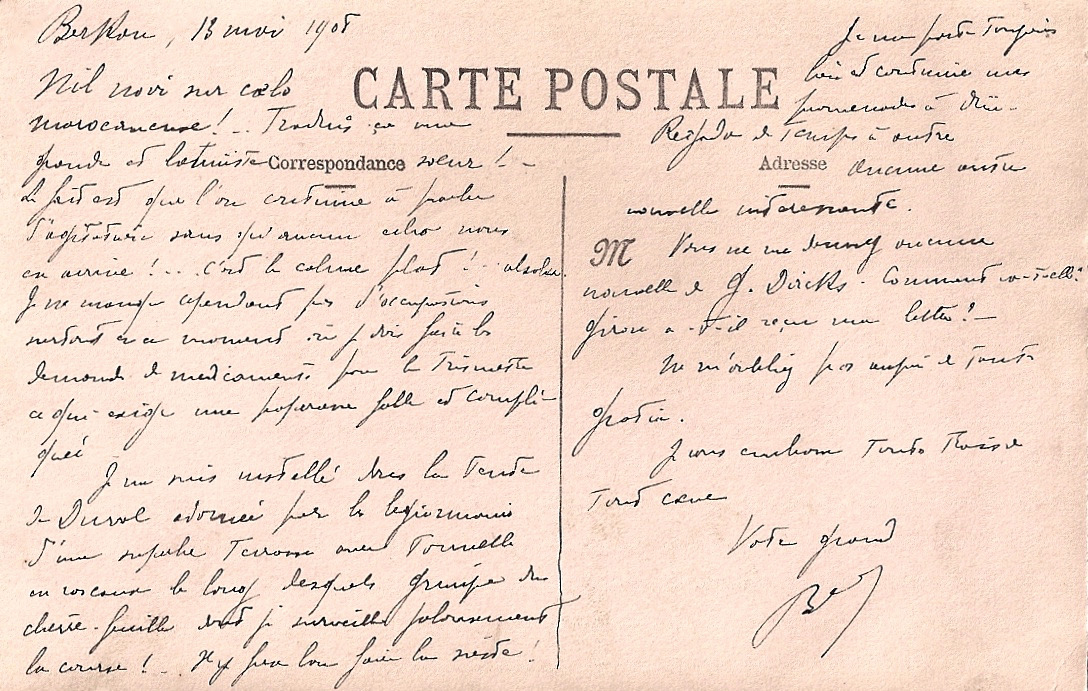 Berkou, 13 mai 1908
Nil novi sur cœlo
marocanense! .. Traduis ça ma
grande et latiniste sœur ! -
Le fait est que l'on continue à parler
d'agitation sans qu'aucun écho nous
en arrive ! .. C'est le calme plat ! absolu.
Je ne manque cependant pas d'occupations
surtout en ce moment où je dois faire les
demandes de médicaments pour le Trimestre
ce qui exige une paperasse folle et compli-
quée
Je me suis installé dans la Tente
de Duval adornée par les légionnaires
d'une superbe Terrasse avec Tonnelle
en roseaux le long desquels grimpe du
chèvre-feuille dont je surveille jalousement
la course ! .. Il y fera bon faire la sieste !
CARTE POSTALE
Correspondance
Adresse
Je me porte Toujours
bien et continue mes
promenades à
Regada de Temps à autre
Aucune autre
nouvelle intéressante.
M
Vous ne me donnez aucune
nouvelle de G. Dircks. Comment va-t-elle?
Girou a-t-il reçu ma lettre ? -
Ne m'oubliez pas auprès de Tante
Gratia.
Je vous embrasse Toutes Trois de
Tout cœur
Votre grand